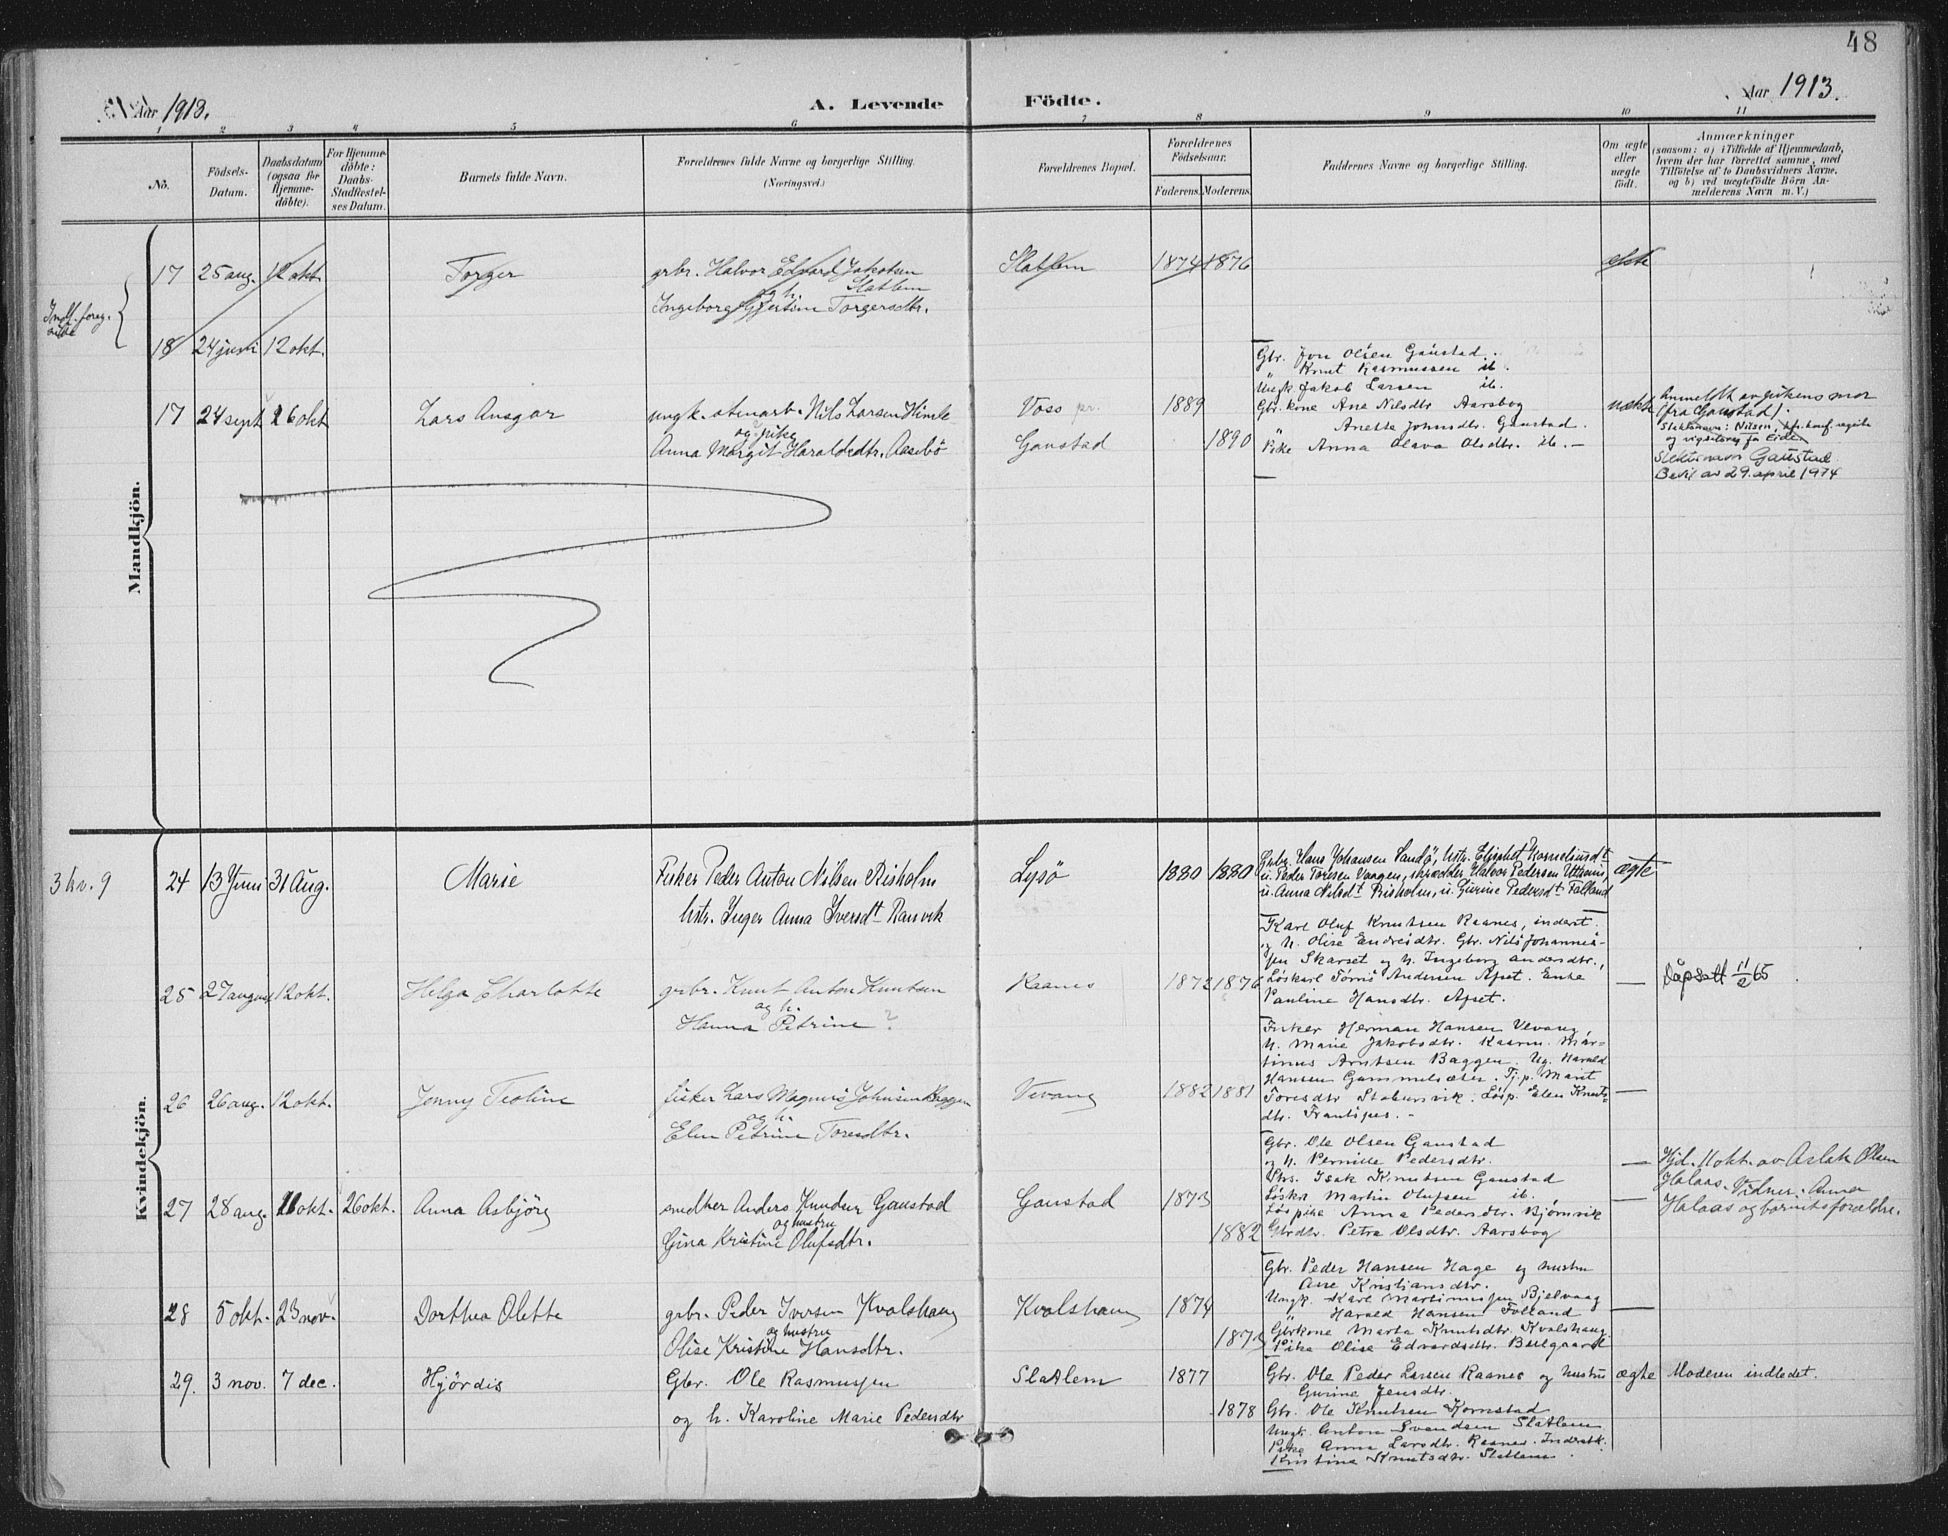 48
Aar 1913.
A. Levende
Födte.
Aar 1913.
1 2 3 4 5 6 7 8 9 10 11
No.
Födsels-
Datum.
Daabsdatum
(ogsaa for
Hjemme-
döbte).
For Hjemme-
döbte:
Daabs-
Stadfæstel-
ses Datum.
Barnets fulde Navn.
Forældrenes fulde Navne og borgerlige Stilling.
(Næringsvei.)
Forældrenes Bopæl.
Forældrenes
Födselsaar.
Faderens. Moderens.
Faddernes Navne og borgerlige Stilling.
Om ægte
eller
uægte
födt.
Anmærkninger
(saasom: a) i Tilfælde af Hjemmedaab,
hvem der har forrettet samme, med
Tilföielse af to Daabsvidners Navne,
og b) ved uægtefödte Börn An-
melderens Navn m. V.)
Mandkjön.
Indf. foreg.
side
17 25 aug. 12 okt. Torger grbr. Halvor Edvard Jakobsen Slatlem 1874 1876 ekte
og h. Slatlem
Ingeborg Gjertine Torgersdtr.
18 24 juni 12 okt.
Gbr. Jon Olsen Gaustad.
" Knut Rasmussen ib.
Ungk Jakob Larsen ib.
17 24 sept 26 okt Lars Ansgar ungk. stenarb. Nils Larsen Himle Voss pr. 1889 Gbr. kone Ane Nilsdtr Aarsbog uekte
og pike
Anna Margit Haraldsdtr. Aasebö Gaustad 1890
Anette Johnsdtr. Gaustad.
Pike Anna Olava Olsdtr. ib. —
Anmeldt av pikens mor
(fra Gaustad).
Slektsnavn: Nilsen,
og vigselsreg fra Eide
Slektsnavn Gaustad
Bevil av 29. april 1974
Kvindekjön.
3 kv. 9
24 13 Juni 31 Aug. Marie Fisker Peder Anton Nilsen Risholm Lysö 1880 1880 ægte
hstr. Inger Anna Iversdt Ransvik
Grbr. Hans Johansen Sandö, hstr. Elisabet Korneliusdt
u. Peder Toresen Vaagen, skrædder Halvor Pedersen
u. Anna Nilsdt Risholm, u. Gurine Pedersdt Folland
Karl Oluf Knutsen Raanes, inderst.
og h. Olise Endresdtr. Gbr. Nils Johannes-
sen Skarset og h. Ingeborg Andersdtr.,
25 27 august 12 okt. Helga Charlotte grbr. Knut Anton Knutsen Raanes 1872 1876 Löskarl Andersen Afset. Enke —
og h.
Hanna Petrine ?
Pauline Hansdtr. Afset.
Dåpsatt 11/2 65
Fisker Herman Hansen Vevang,
h. Marie Jakobsdtr. Kaarm. Mar-
tinus Arntsen Baggen. Ug. Harald
Hansen Gammelsæter. Tj. p. Marit
26 26 aug. 12 okt. Jenny Teoline fisker Lars Magnus Johnsen Baggen Vevang 1882 1881 —
og h.
Elen Petrine Toresdtr.
Toresdtr Stabursvik. Lösp. Elen Knuts-
dtr.
Gbr. Ole Olsen Gaustad
og h. Pernille Pedersdtr. —
Isak Knutsen Gaustad
27 28 aug. 11 okt. 26 okt. Anna Asbjörg snedker Anders Knudsen Gaustad Gaustad 1873
og hustru
Gina Kristine Olufsdtr. 1882
Löskr Martin Olufsen ib. —
Löspike Anna Pedersdtr. Bjömvik
Gbrdtr. Petra Olsdtr. Aarsbog
Hjd. 11 okt. av Aslak Olsen
Halaas. Vidner: Anna
Halaas og barnets forældre.
28 5 okt. 23 nov. Dorthea Olette grbr. Peder Iversen Kvalshaug Kvalshaug 1874 —
og hustru
Olise Kristine Hansdtr. 1873
Gbr. Peder Hansen Hage og hustru
Ane Kristiansdtr.
Ungk. Karl Martinussen Bjelvaag
" Harald Hansen Folland
Gbrkone Marta Knutsdtr. Kvalshaug.
Pike Olise Edvardsdtr.
29. 3 nov. 7 dec. Hjördis Gbr. Ole Rasmussen Slatlem 1877 ægte Moderen indledet.
og h. Karoline Marie Pedersdtr 1878
Gbr. Ole Peder Larsen Raanes og hustru
Gurine Jensdtr.
Gbr. Ole Knutsen Kornstad
Ungk. Anton Svendsen Slatlem
Pike Anna Larsdtr. Raanes.
Kristina Knutsdtr. Slatlem.